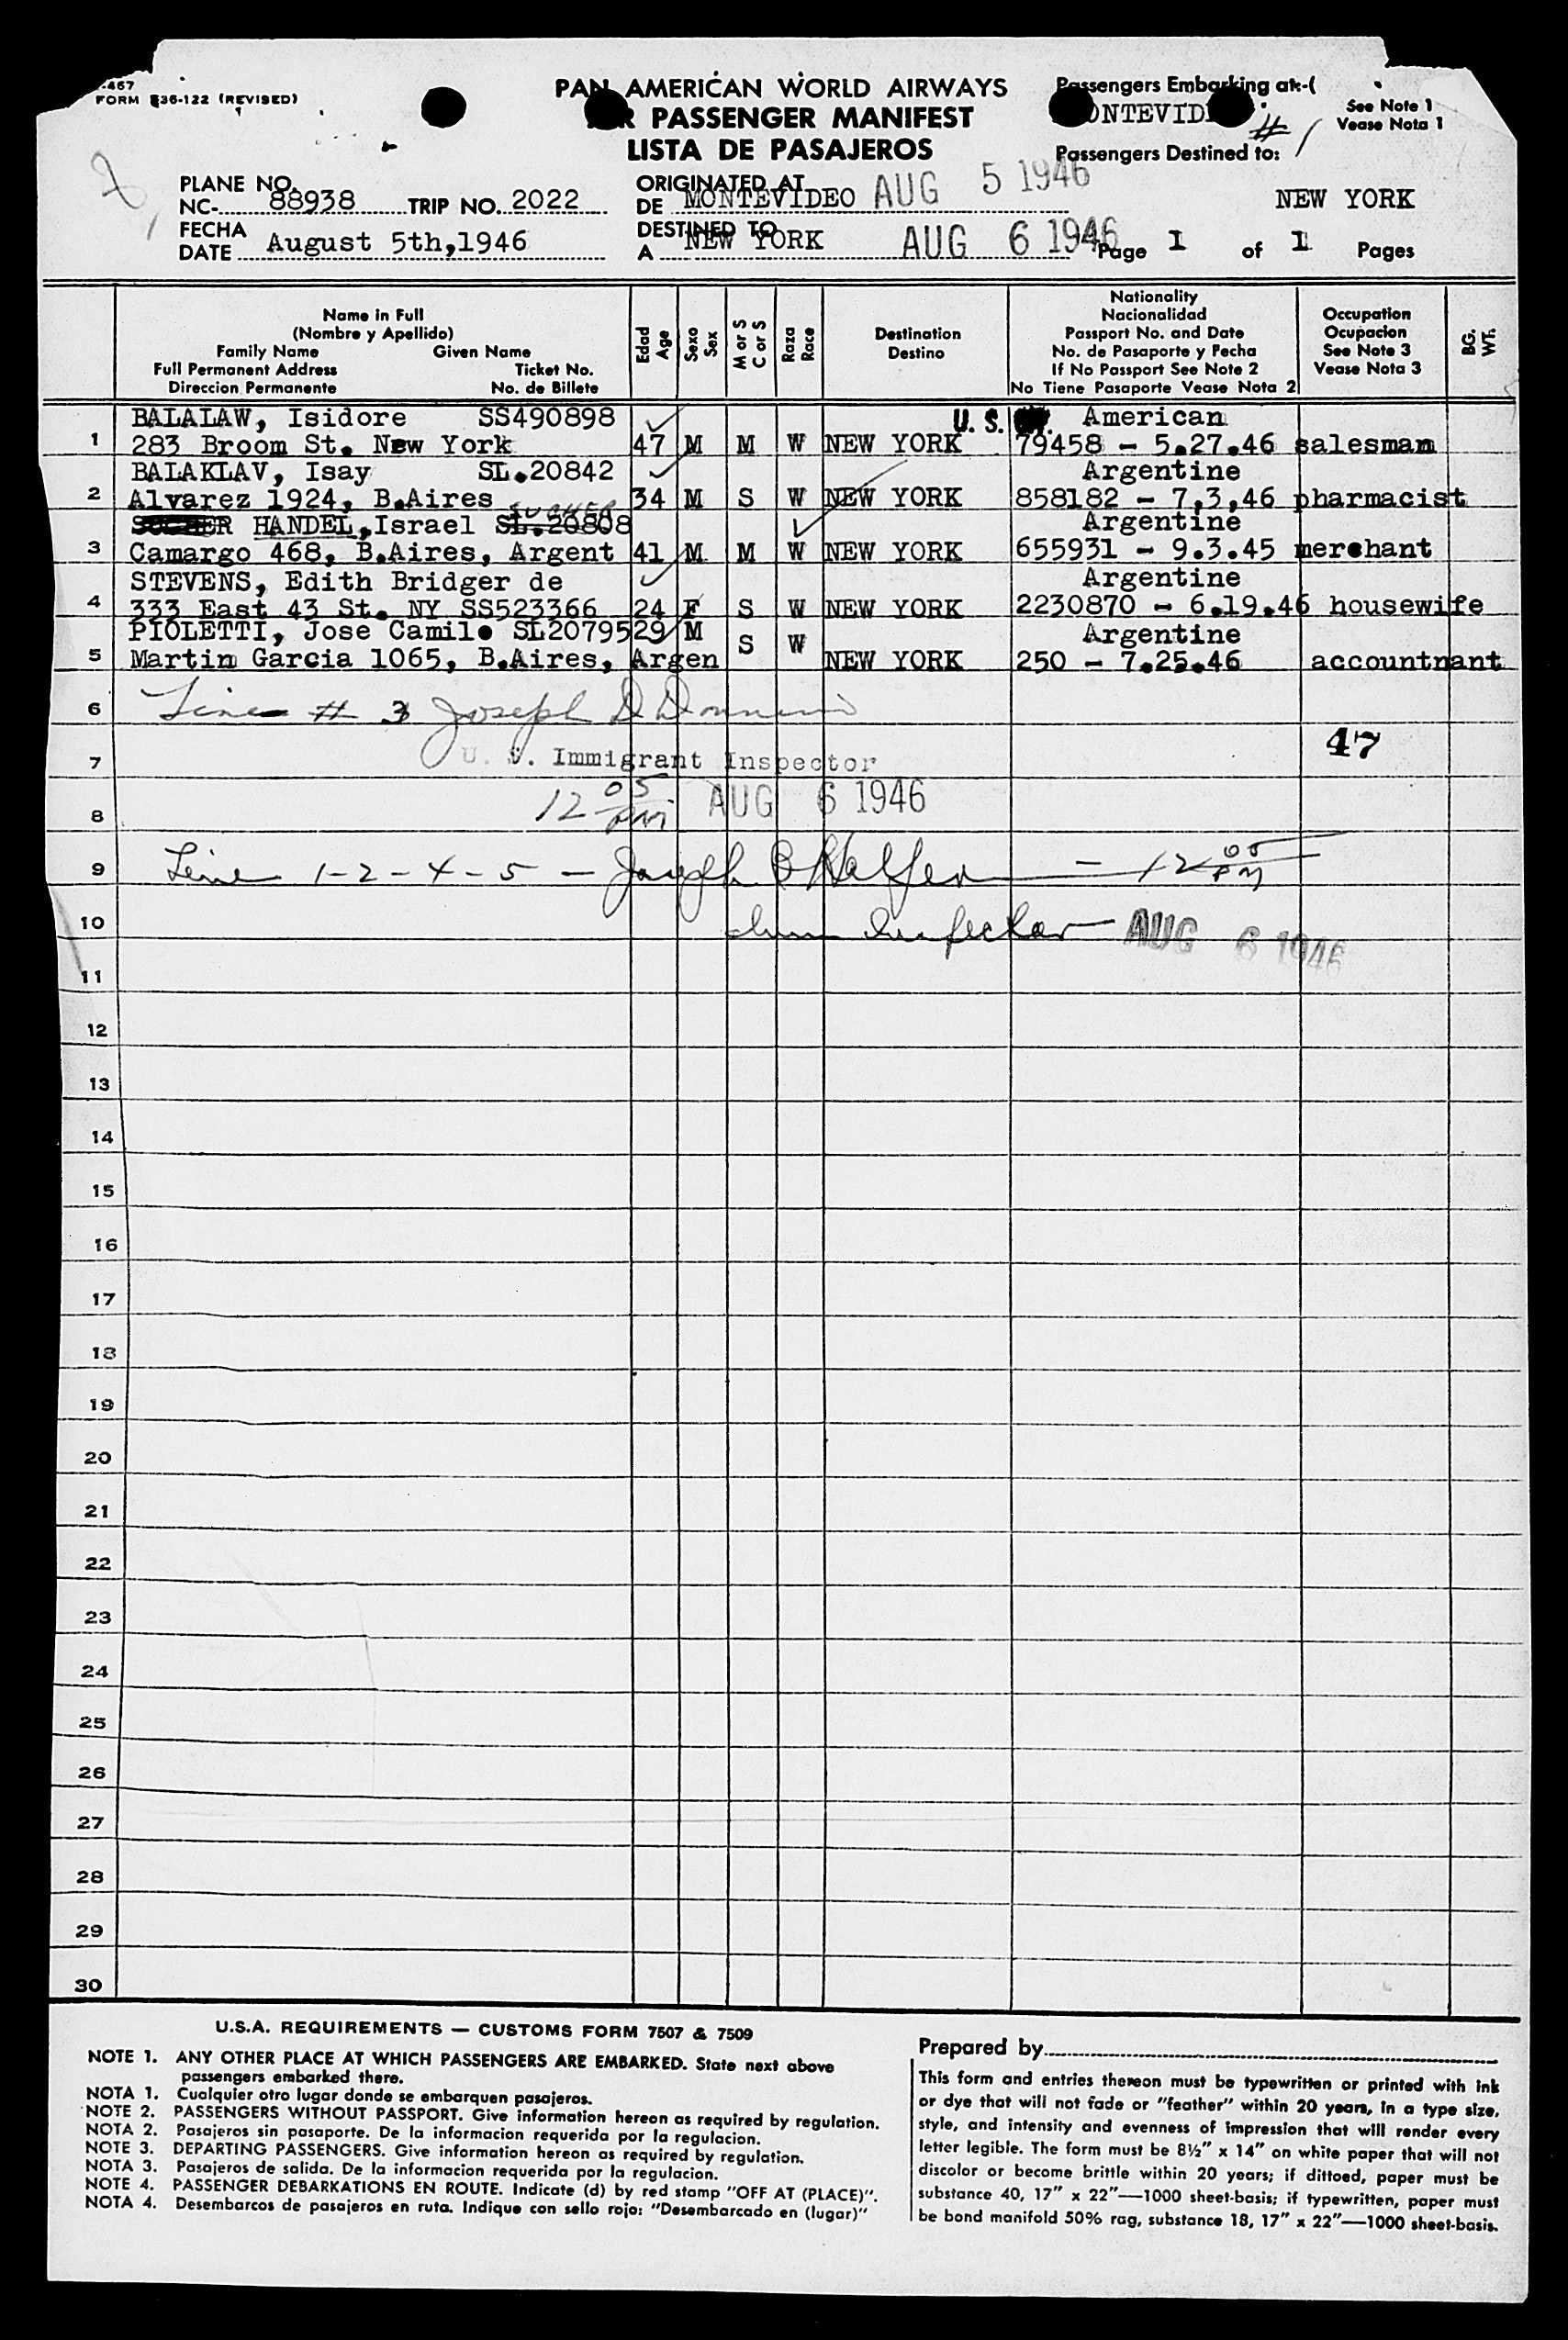 -467
FORM E36-122 (REVISED)
PAN AMERICAN WORLD AIRWAYS
PASSENGER MANIFEST
LISTA DE PASAJEROS
Passengers Embarking at-(
ONTEVID
# 1
See Note 1
Vease Nota 1
Passengers Destined to:
NEW YORK
PLANE NO.
NC- 88938 TRIP NO. 2022
FECHA
DATE August 5th,1946
ORIGINATED AT
DE MONTEVIDEO AUG 5 1946
DESTINED TO
A NEW YORK AUG 6 1946
Page 1 of 1 Pages
Name in Full
(Nombre y Apellido)
Family Name Given Name
Full Permanent Address Ticket No.
Direccion Permanente No. de Billete
Edad Age
Sexo Sex
M or S C or S
Raza Race
Destination
Destino
Nationality
Nacionalidad
Passport No. and Date
No. de Pasaporte y Fecha
If No Passport See Note 2
No Tiene Pasaporte Vease Nota 2
Occupation
Ocupacion
See Note 3
Vease Nota 3
BG. WT.
BALALAW, Isidore SS490898 U.S. American
1 283 Broom St. New York 47 M M W NEW YORK 79458 - 5.27.46 salesman
BALAKLAV, Isay SL.20842 Argentine
2 Alvarez 1924, B.Aires 34 M S W NEW YORK 858182 - 7,3,46 pharmacist
HANDEL,Israel SL.20808 Argentine
3 Camargo 468, B.Aires, Argent 41 M M W NEW YORK 655931 - 9.3.45 merchant
STEVENS, Edith Bridger de Argentine
4 333 East 43 St. NY SS523366 24 F S W NEW YORK 2230870 - 6.19.46 housewife
PIOLETTI, Jose Camilo SL20795 29 M S W Argentine
5 Martin Garcia 1065, B.Aires, Argen NEW YORK 250 - 7.25.46 accountnant
6 Line # 3 Joseph D
7 U. S. Immigrant Inspector 47
8 12 05 PM AUG 6 1946
9 Line 1-2-4-5 - Joseph - 12 05 PM
10 Inspector AUG 6 1946
11
12
13
14
15
16
17
18
19
20
21
22
23
24
25
26
27
28
29
30
U.S.A. REQUIREMENTS — CUSTOMS FORM 7507 & 7509
NOTE 1. ANY OTHER PLACE AT WHICH PASSENGERS ARE EMBARKED. State next above
passengers embarked there.
NOTA 1. Cualquier otro lugar donde se embarquen pasajeros.
NOTE 2. PASSENGERS WITHOUT PASSPORT. Give information hereon as required by regulation.
NOTA 2. Pasajeros sin pasaporte. De la informacion requerida por la regulacion.
NOTE 3. DEPARTING PASSENGERS. Give information hereon as required by regulation.
NOTA 3. Pasajeros de salida. De la informacion requerida por la regulacion.
NOTE 4. PASSENGER DEBARKATIONS EN ROUTE. Indicate (d) by red stamp "OFF AT (PLACE)".
NOTA 4. Desembarcos de pasajeros en ruta. Indique con sello rojo: "Desembarcado en (lugar)"
Prepared by
This form and entries thereon must be typewritten or printed with ink
or dye that will not fade or "feather" within 20 years, in a type size,
style, and intensity and evenness of impression that will render every
letter legible. The form must be 8½" x 14" on white paper that will not
discolor or become brittle within 20 years; if dittoed, paper must be
substance 40, 17" x 22"—1000 sheet-basis; if typewritten, paper must
be bond manifold 50% rag, substance 18, 17" x 22"—1000 sheet-basis.